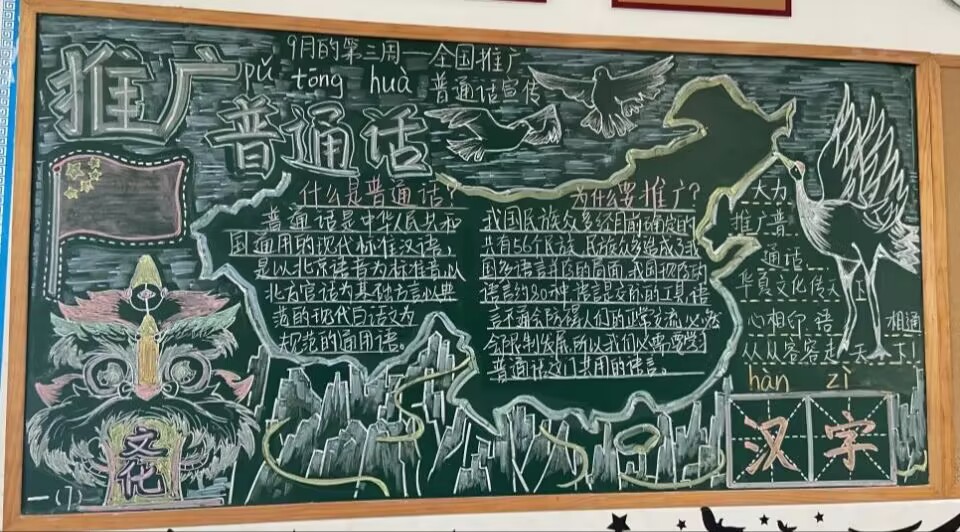 推广
普通话
pǔ tōng huà
9月的第三周——全国推广
普通话宣传
什么是普通话?
普通话是中华人民共和
国通用的现代标准汉语,
是以北京语音为标准音,以
北方官话为基础方言,以典
范的现代白话文为
规范的通用语。
为什么要推广?
我国民族众多,经目前确定的
共有56个民族,民族众多造成了我
国多语言并存的局面,我国现存的
语言约80种,语言是交际的工具,语
言不通会阻碍人们的正常交流,必然
会限制发展,所以我们必需要学习
普通话这门共用的语言。
大力
推广普
通话
华夏文化传
心相印 语 相通
从从容容走天下!
hàn zì
汉字
文化
一(1)